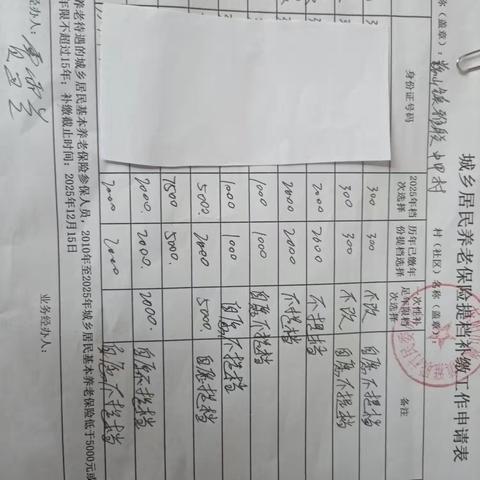 城乡居民养老保险提档补缴工作申请表
称（盖章）： 村（社区）名称（盖章）
身份证号码 2025年档次选择 历年已缴年份提档选择 一次性补足年限档次选择 备注
3 300 300 不改 自愿不提档
3 300 300 不改 自愿不提档
2000 2000 不提档
2000 2000 不提档
1000 1000 自愿不提档
1000 1000 自愿不提档
5000 2000 5000 自愿提档
7500 500
2000 2000 2000 自愿不提档
2000 2000 自愿不提档
养老待遇的城乡居民基本养老保险参保人员，2010年至2025年城乡居民基本养老保险低于5000元或
年限不超过15年；补缴截止时间：2025年12月15日
经办人： 业务经办人：